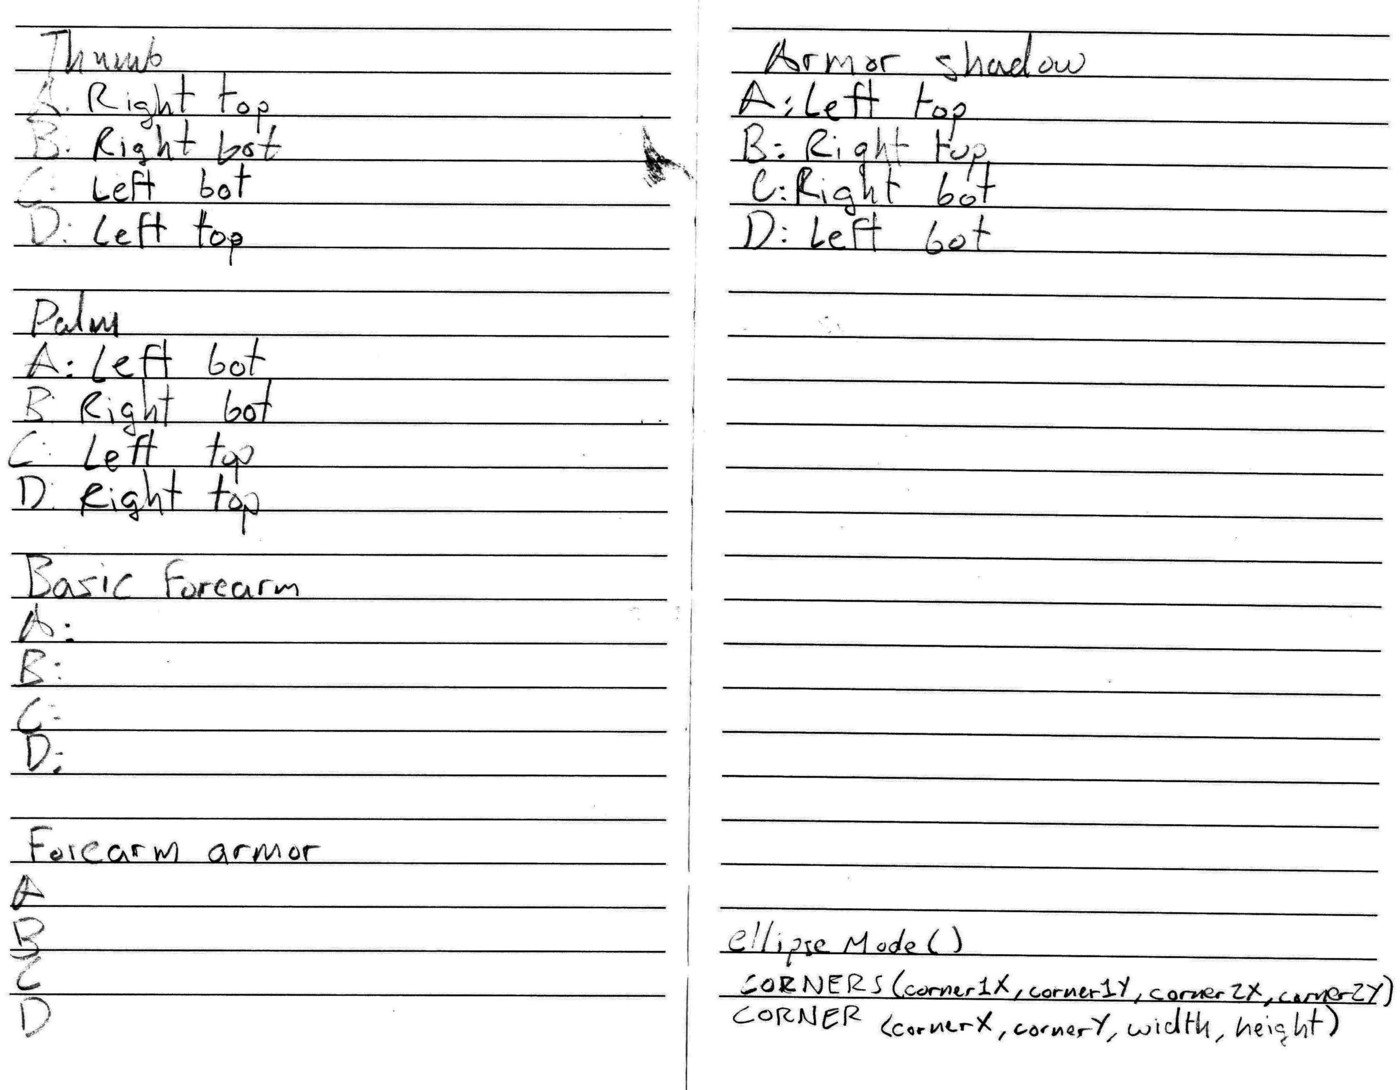 Thumb
A: Right top
B: Right bot
C: Left bot
D: Left top
Palm
A: Left bot
B: Right bot
C: Left top
D: Right top
Basic Forearm
A:
B:
C:
D:
Forearm armor
A
B
C
D
Armor shadow
A: Left top
B: Right top
C: Right bot
D: Left bot
ellipseMode()
CORNERS (corner1X, corner1Y, corner2X, corner2Y)
CORNER (cornerX, cornerY, width, height)